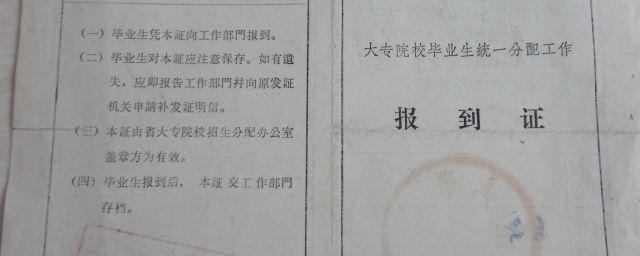 (一) 毕业生凭本証向工作部門报到。
(二) 毕业生对本証应注意保存。如有遺
失，应即报告工作部門幷向原发证
机关申請补发证明信。
(三) 本証由省大专院校招生分配办公室
盖章方为有效。
(四) 毕业生报到后， 本証交工作部門
存档。
大专院校毕业生统一分配工作
报到证